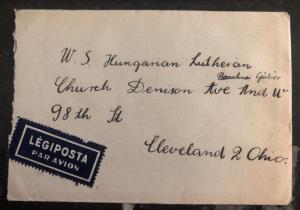 W. S. Hungarian Lutheran
Church Denison Ave And W
98th St
Cleveland 2 Ohio.
LÉGIPOSTA
PAR AVION